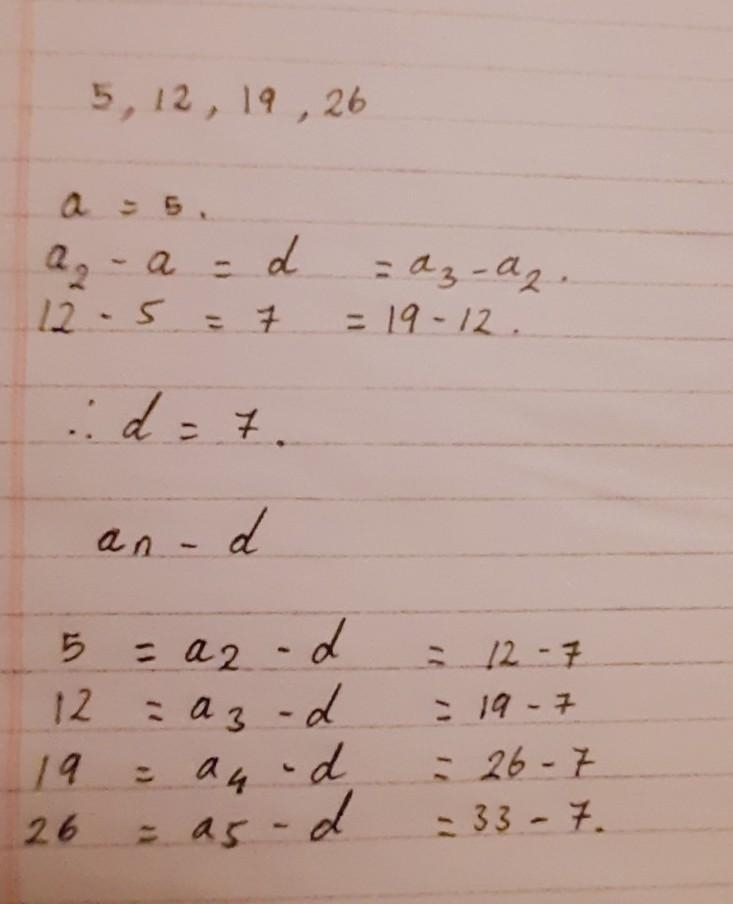 5, 12, 19, 26
a = 5.
a₂ - a = d = a₃ - a₂.
12 - 5 = 7 = 19 - 12.
∴ d = 7.
an - d
5 = a₂ - d = 12 - 7
12 = a₃ - d = 19 - 7
19 = a₄ - d = 26 - 7
26 = a₅ - d = 33 - 7.